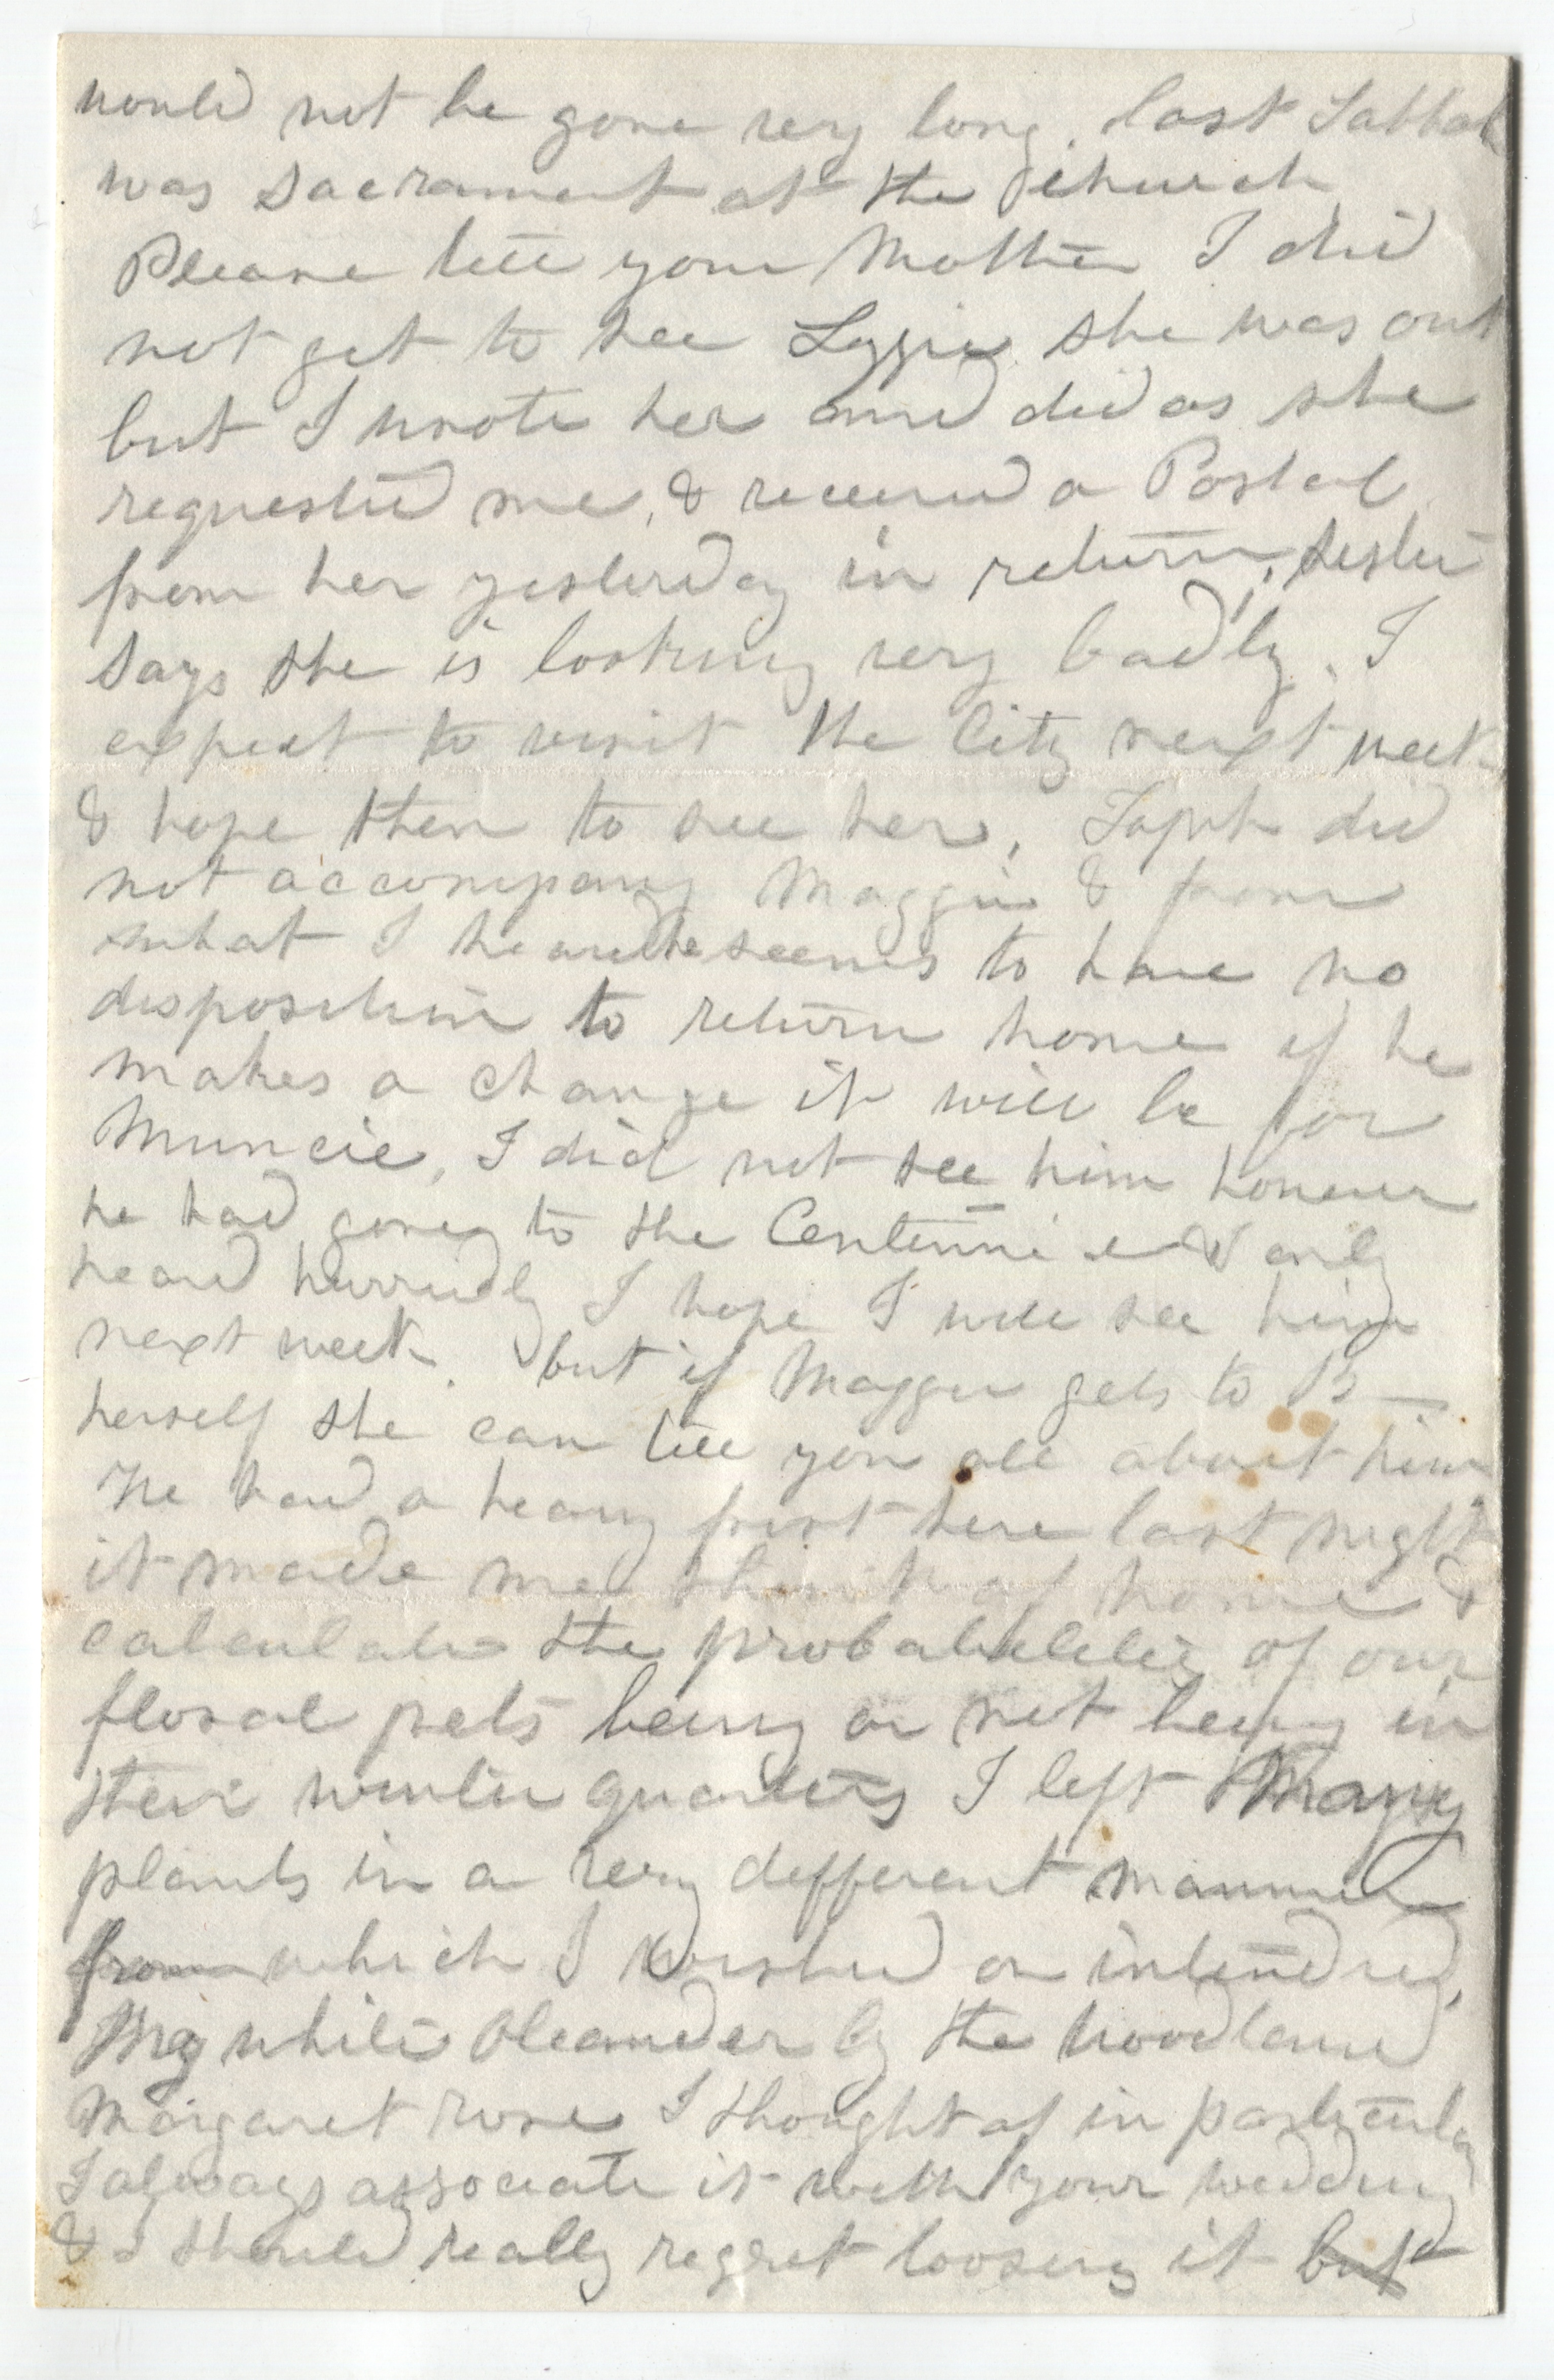 would not be gone very long. last Sabbath
was Sacrament at the church
Please tell your Mother I did
not get to see Lizzie she was out
but I wrote her and did as she
requested me, & received a Postal
from her yesterday in return, sister
says she is looking very badly. I
expect to visit the City next week
& hope then to see her, did
not accompany Maggie & from
what I heard he seems to have no
disposition to return home if he
makes a change it will be for
Muncie, I did not see him however
he had gone to the Centennial & only
heard hurriedly I hope I will see him
next week. but if Maggie gets to B—
herself she can tell you all about him
We had a heavy frost here last night
it made me think of home &
calculate the probabilities of our
floral pets being or not being in
their winter quarters I left Many
plants in a very different manner
from which I wished or intended,
My white Oleander by the woodland
Margaret rose I thought of in particular
I always associate it with your wedding
& I should really regret loosing it but